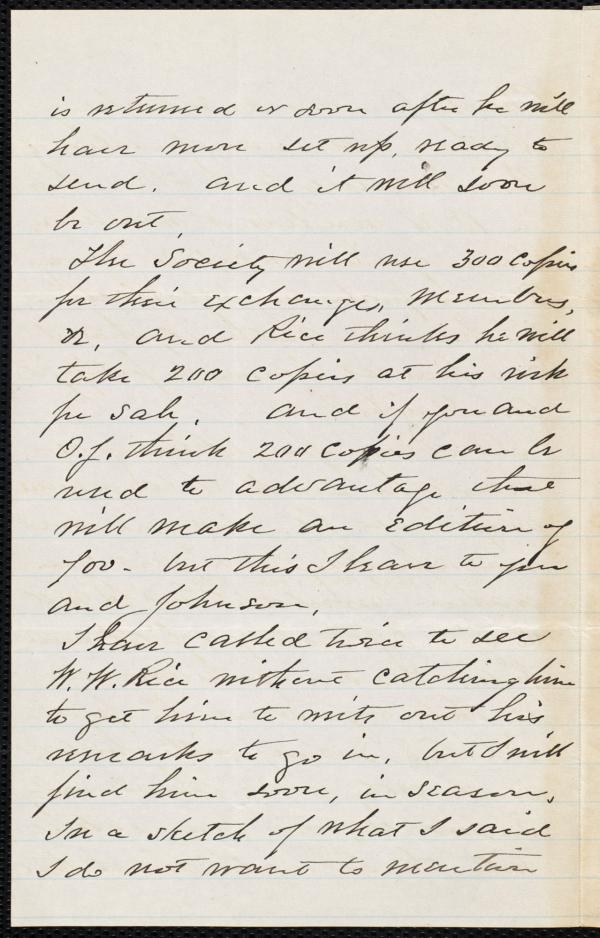 is returned or soon after he will
have more set up, ready to
send. and it will soon
be out.
The Society will use 300 copies
for their exchanges, members,
&c, and Rice thinks he will
take 200 copies at his risk
for sale. and if you and
O.J. think 200 copies can be
used to advantage that
will make an edition of
700 - but this I leave to you
and Johnson.
I have called twice to see
W. W. Rice without catching him
to get him to write out his
remarks to go in, but I will
find him soon, in season.
In a sketch of what I said
I do not want to mention